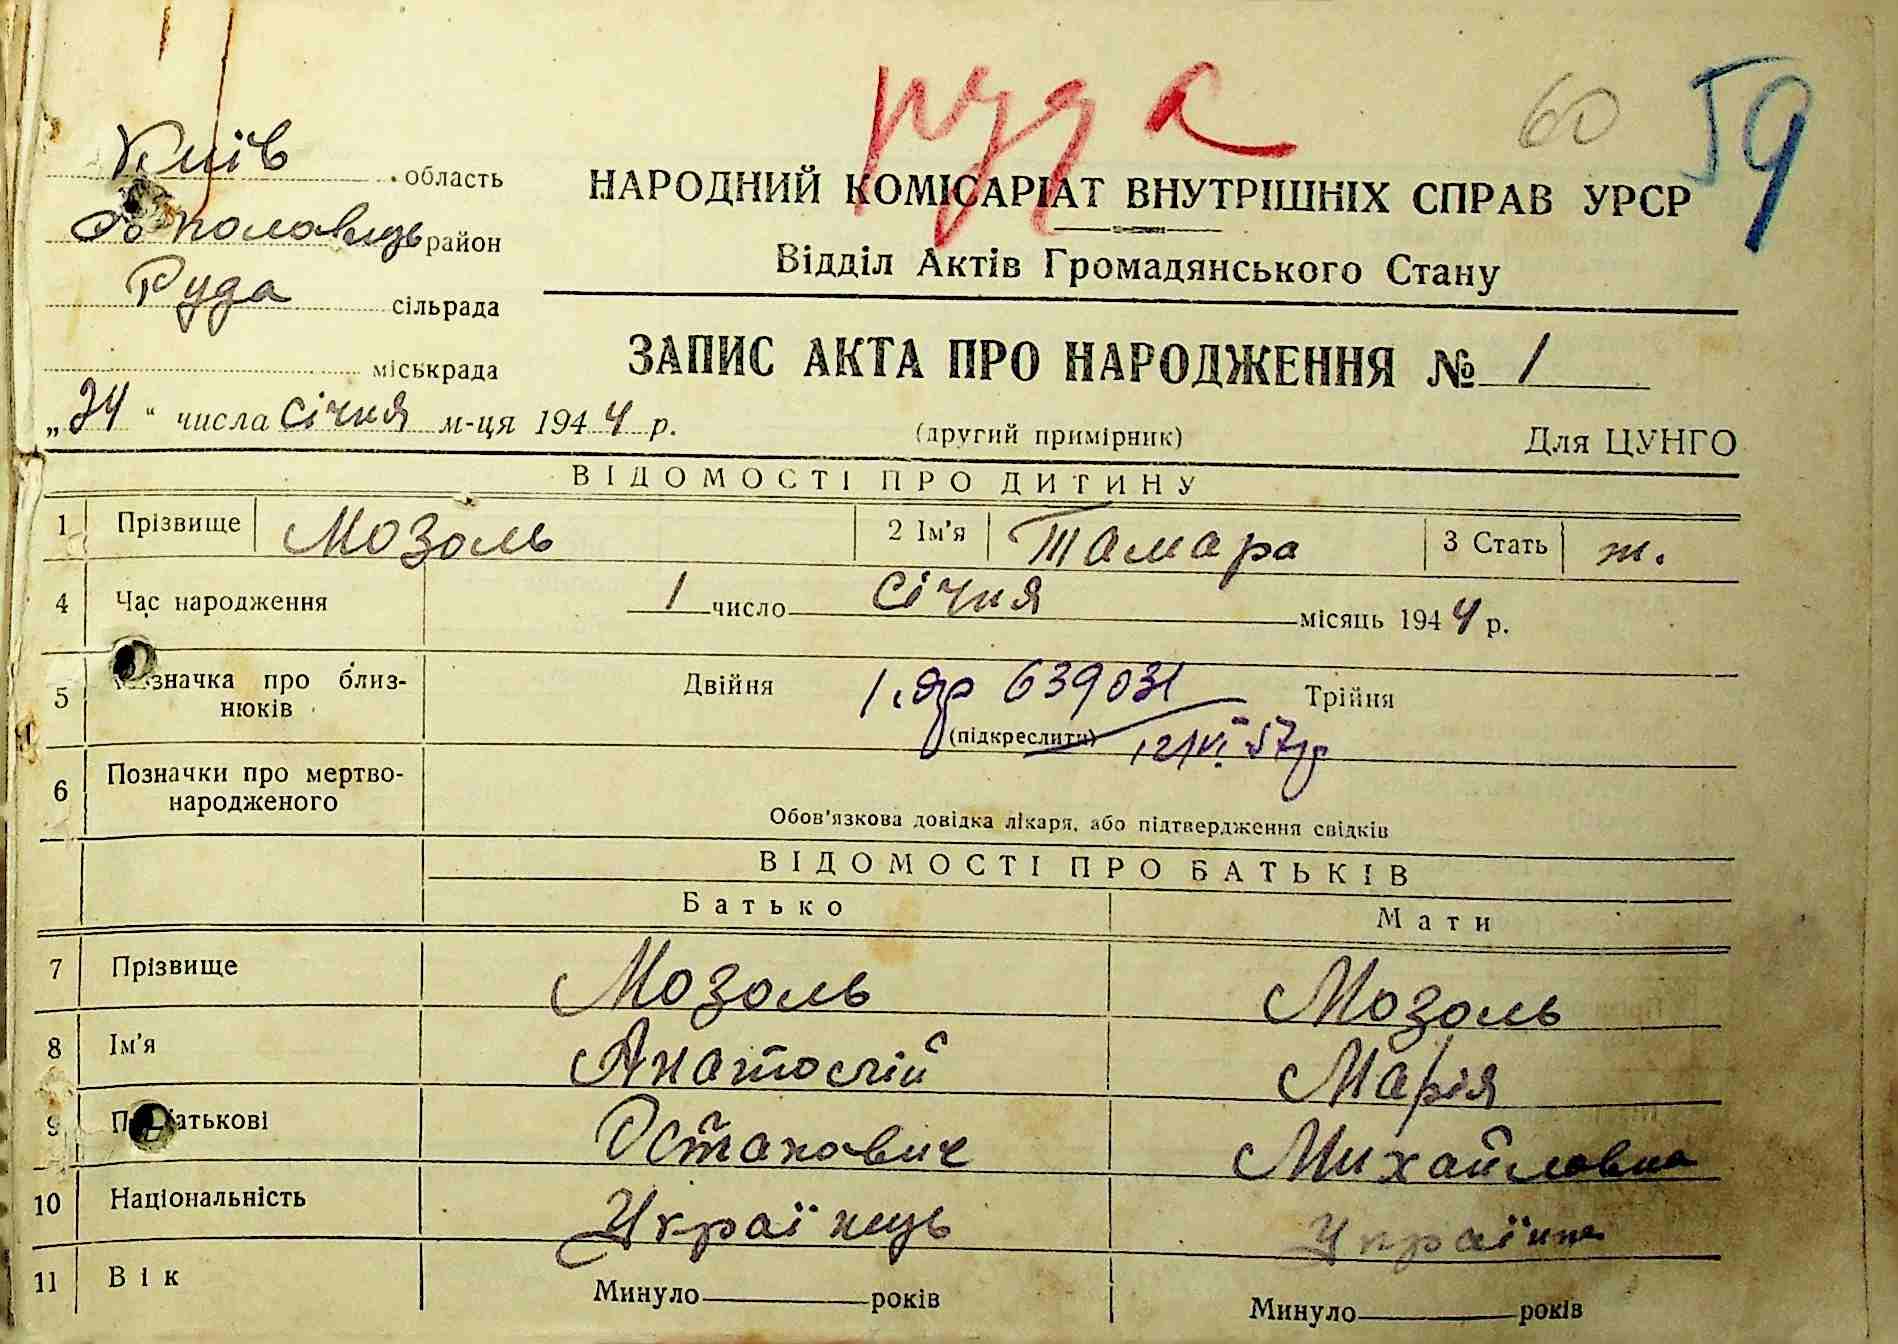 Руда 60 59
Київ область
район
Руда сільрада
міськрада
НАРОДНИЙ КОМІСАРІАТ ВНУТРІШНІХ СПРАВ УРСР
Відділ Актів Громадянського Стану
ЗАПИС АКТА ПРО НАРОДЖЕННЯ № 1
„24“ числа Січня м-ця 1944 р.
(другий примірник)
Для ЦУНГО
ВІДОМОСТІ ПРО ДИТИНУ
1 Прізвище Мозоль 2 Ім'я Тамара 3 Стать ж.
4 Час народження 1 число Січня місяць 1944 р.
5 значка про близ-
нюків Двійня 639031 Трійня
(підкреслити) 57
6 Позначки про мертво-
народженого
Обов'язкова довідка лікаря, або підтвердження свідків
ВІДОМОСТІ ПРО БАТЬКІВ
Батько Мати
7 Прізвище Мозоль Мозоль
8 Ім'я Анатолій Марія
9 По батькові Остапович Михайловна
10 Національність Українець Українка
11 Вік Минуло років Минуло років